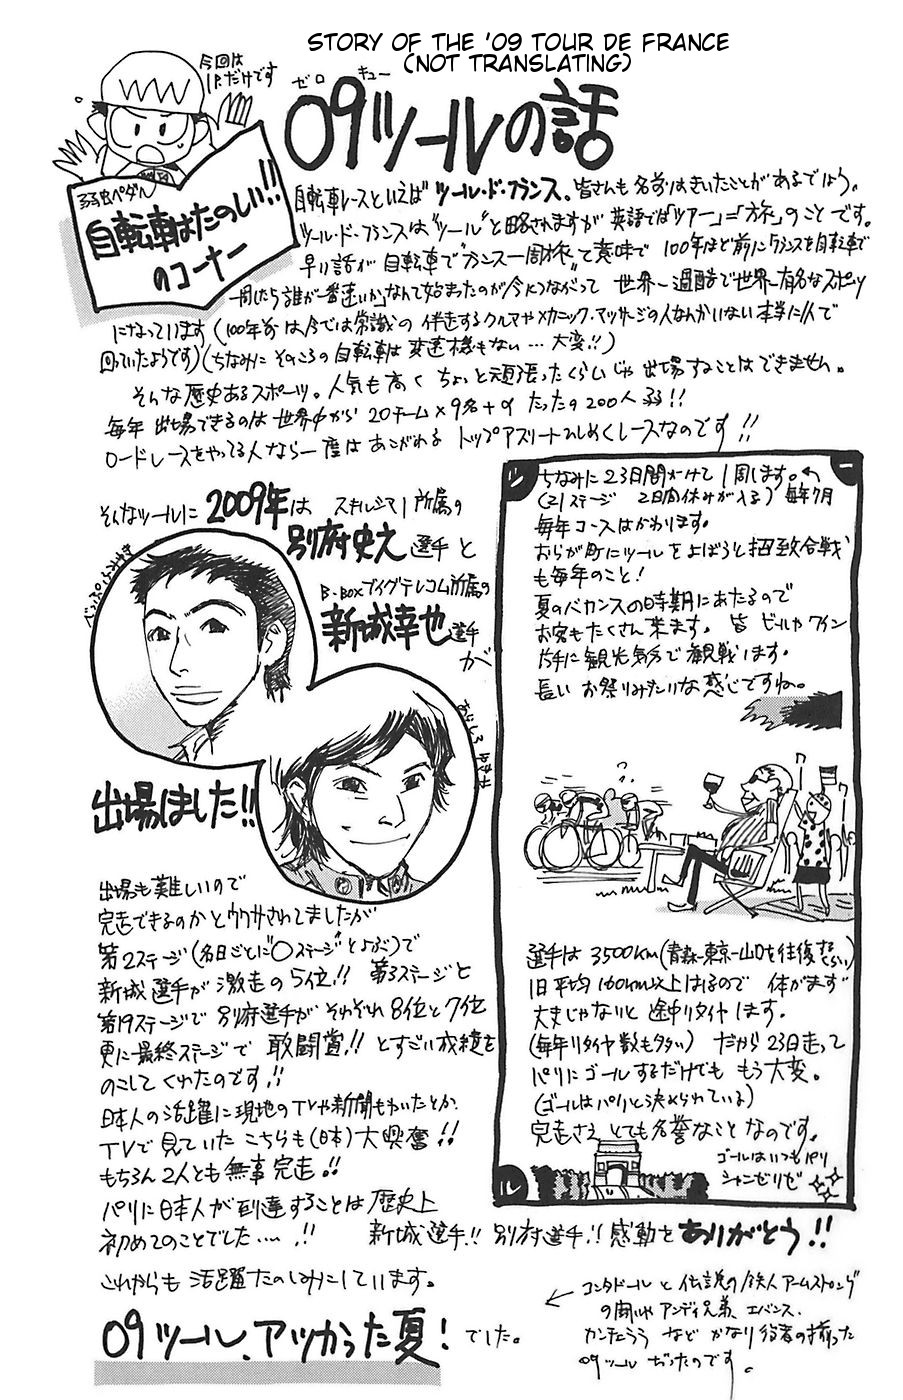 STORY OF THE '09 TOUR DE FRANCE
(NOT TRANSLATING)
今回は
1P.だけです
ゼロ キュー
09ツールの話
弱虫ペダル
自転車はたのしい!!
のコーナー
自転車レースといえば ツール・ド・フランス、皆さんも名前はきいたことがあるでしょう。
ツール・ド・フランスは"ツール"と略されますが 英語では「ツアー」=「旅」のことです。
早い話が 自転車で"フランス一周旅"って意味で 100年ほど前に「フランスを自転車で
一周したら誰が一番速いか」なんて始まったのが今につながって 世界一過酷で世界一有名なスポーツ
になっています(100年前は今では常識の 伴走するクルマやメカニック、マッサージの人なんかいない 本当に1人で
回っていたようです)(ちなみに そのころの自転車は 変速機もない…大変!!)
そんな歴史あるスポーツ。人気も高く ちょっと頑張ったくらいじゃ 出場することはできません。
毎年 出場できるのは 世界中から 20チーム×9名+α たったの200人弱!!
ロードレースをやってる人なら一度はあこがれる トップアスリートひしめくレースなのです!!
そんなツールに 2009年は スキル・シマノ所属の
別府史之選手と
B・boxブイグテレコム所属の
新城幸也選手
が
べっぷ ふみゆき
あらしろ ゆきや
出場しました!!
出場も難しいので
完走できるのかとウワサされてましたが
第2ステージ(各日ごとに"〇ステージ"とよぶ)で
新城選手が 激走の5位!! 第3ステージと
第19ステージで 別府選手が それぞれ 8位と7位
更に最終ステージで 敢闘賞!! とすごい成績を
のこしてくれたのです!!
日本人の活躍に現地のTVや新聞もわいたとか、
TVで見ていた こちらも(日本)大興奮!!
もちろん2人とも無事完走!!
パリに日本人が到達することは歴史上
初めてのことでした…!!
新城選手!! 別府選手!! 感動をありがとう!!
これからも 活躍たのしみにしています。
09ツール、アツかった夏! でした。
ツ
ー
ル
ちなみに 23日間かけて 1周します。
(21ステージ 2日間休みが入る) 毎年7月
毎年コースはかわります。
おらが町にツールをよぼうと招致合戦
も毎年のこと!
夏のバカンスの時期にあたるので
お客もたくさん来ます。皆 ビールやワイン
片手に観光気分で観戦します。
長い お祭りみたいな感じですね。
選手は 3500km(青森-東京-山口を往復するくらい)
1日平均160km以上はしるので 体がまず
丈夫じゃないと 途中リタイヤします。
(毎年リタイヤ数も多い) だから23日走って
パリにゴールするだけでも もう大変。
(ゴールはパリと決められている)
完走さえ とても名誉なことなのです。
ゴールはいつもパリ
シャンゼリゼ
コンタドールと 伝説の鉄人アームストロング
の闘いや アンディ兄弟、エバンス、
カンチェラらなど かなり役者の揃った
09ツール だったのです。